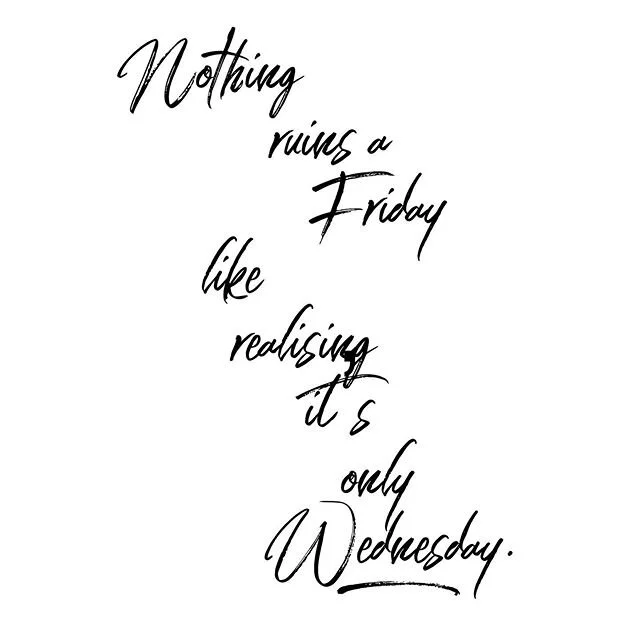 Nothing
ruins a
Friday
like
realising
it's
only
Wednesday.